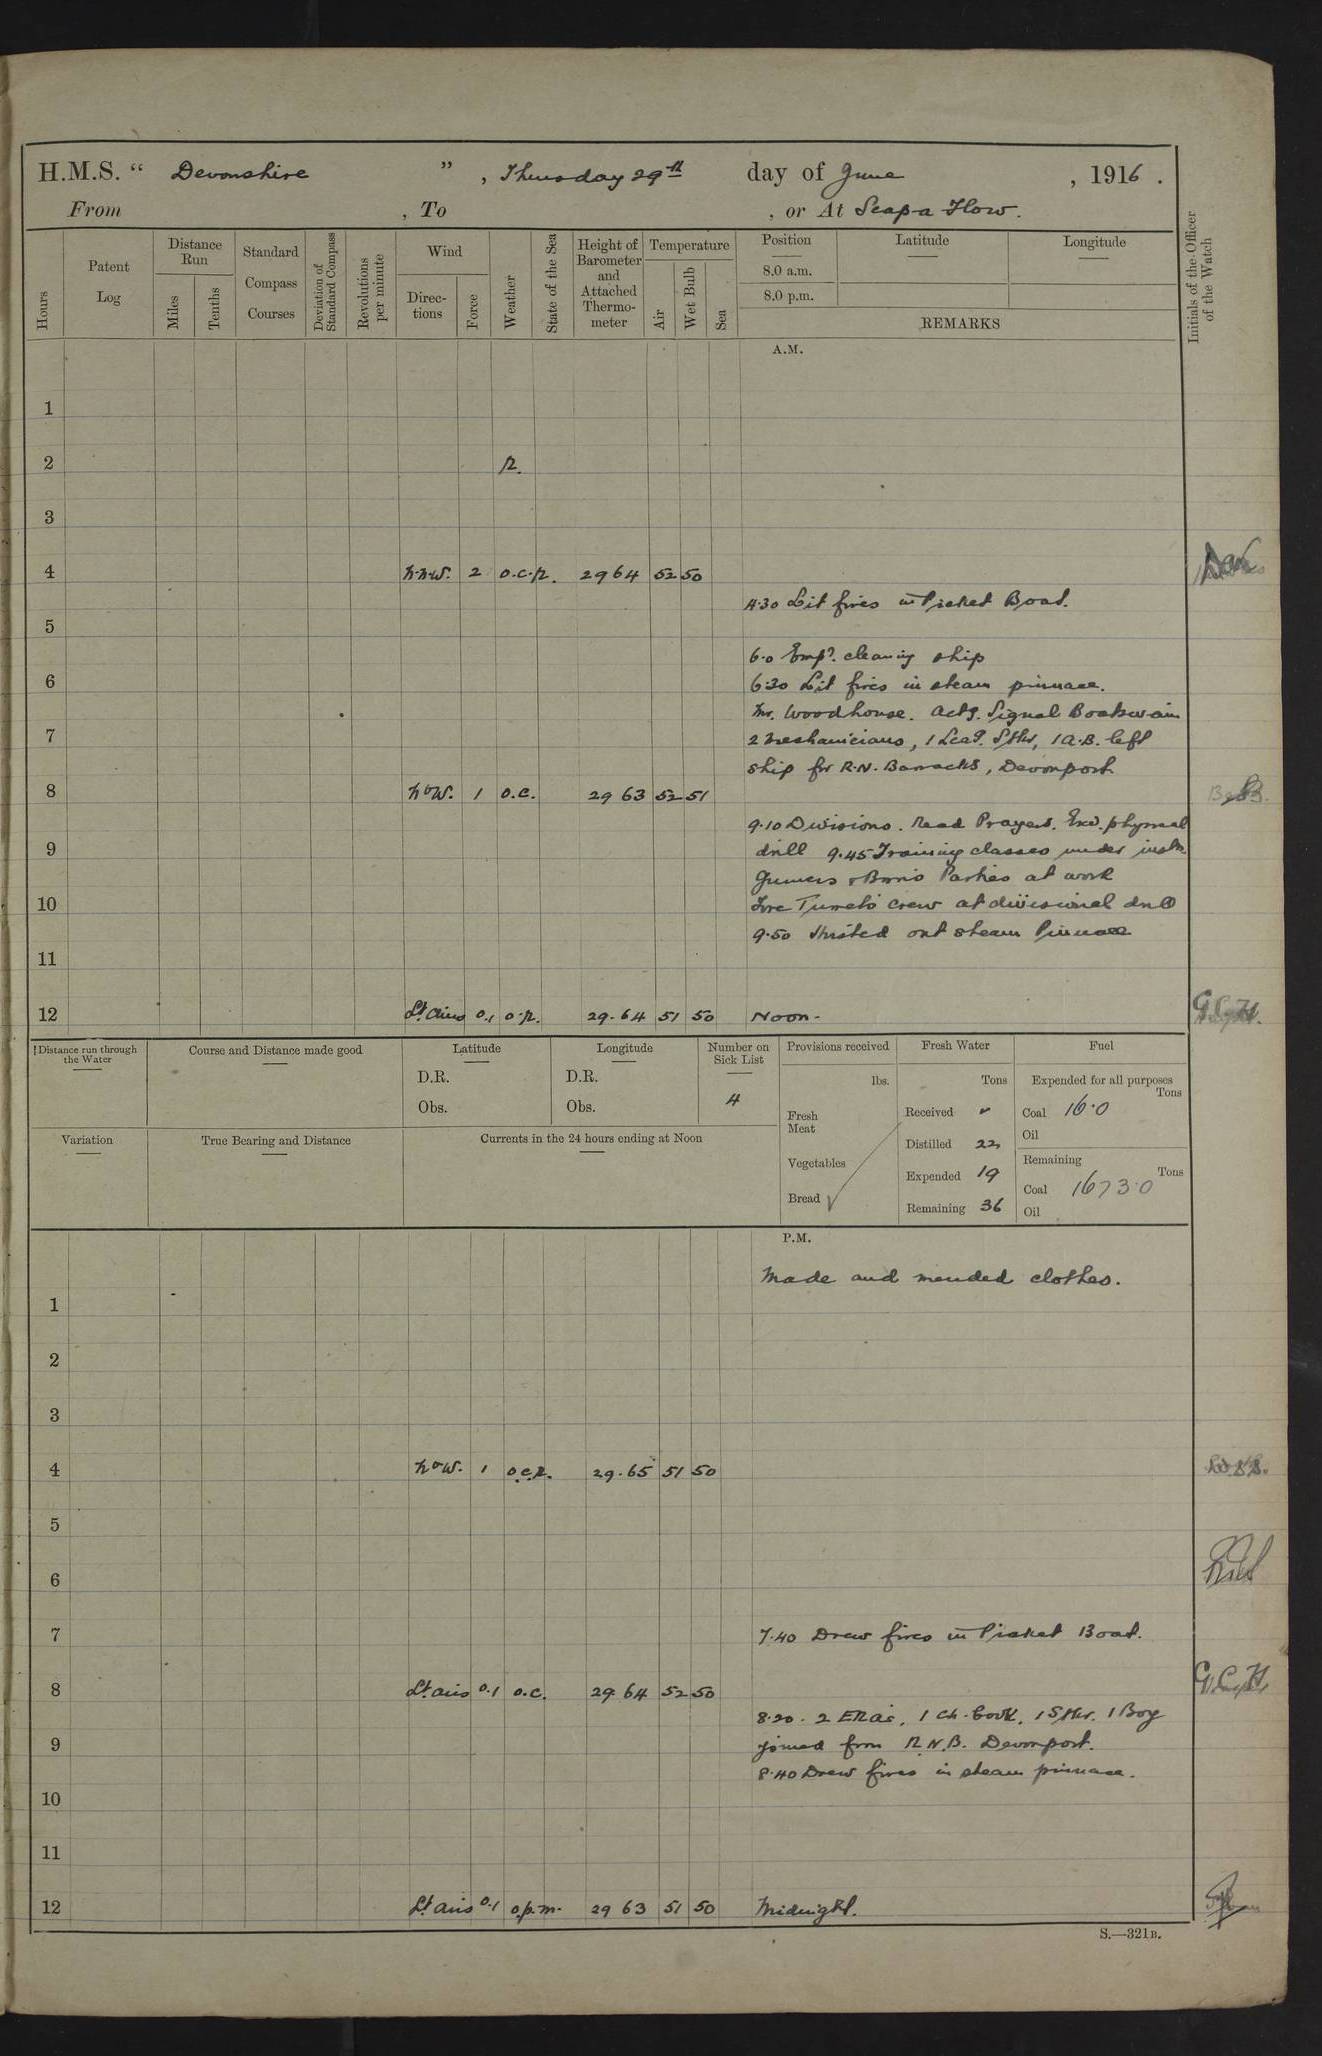 H.M.S. " Devonshire " , Thursday 29th day of June , 1916 .
From , To , or At Scapa Flow.
Hours
Patent Log
Distance Run
Miles
Tenths
Standard Compass Courses
Deviation of Standard Compass
Revolutions per minute
Wind
Directions
Force
Weather
State of the Sea
Height of Barometer and Attached Thermometer
Temperature
Air
Wet Bulb
Sea
Position
8.0 a.m.
8.0 p.m.
Latitude
Longitude
REMARKS
Initials of the Officer of the Watch
A.M.
1
2 R.
3
4 N.N.W. 2 o.c.r. 29 64 52 50
4.30 Lit fires in Picket Boat.
5
6.0 Emp?. cleaning ship
6 6.30 Lit fires in steam pinnace.
Mr. Woodhouse. Actg. Signal Boatswain
7 2 mechanicians, 1 Leag. Stkr, 1 A.B. left
ship for R.N. Barracks, Devonport
8 NoW. 1 o.c. 29 63 52 51
9.10 Divisions. Read Prayers. Exd. physical
9 drill 9.45 Training classes under instn
Gunners & Bosn's Parties at work
10 Fore Turrets crew at divisional drill
9.50 Hoisted out steam Pinnace
11
12 Lt. airs 0.1 o.r. 29.64 51 50 Noon-
Distance run through the Water
Course and Distance made good
Latitude
D.R.
Obs.
Longitude
D.R.
Obs.
Number on Sick List
4
Provisions received
lbs.
Fresh Meat
Vegetables
Bread
Fresh Water
Tons
Received
Distilled 22
Expended 19
Remaining 36
Fuel
Expended for all purposes
Tons
Coal 16.0
Oil
Remaining
Tons
Coal 1673.0
Oil
Variation
True Bearing and Distance
Currents in the 24 hours ending at Noon
P.M.
Made and mended clothes.
1
2
3
4 NoW. 1 o.c.r. 29.65 51 50
5
6
7 7.40 Drew fires in Picket Boat.
8 Lt. airs 0.1 o.c. 29.64 52 50
8.20. 2 ERAs, 1 Ch. Cook, 1 Stkr. 1 Boy
9 joined from R.N.B. Devonport.
8.40 Drew fires in steam pinnace.
10
11
12 Lt. airs 0.1 o.p.m. 29 63 51 50 Midnight.
S.—321B.